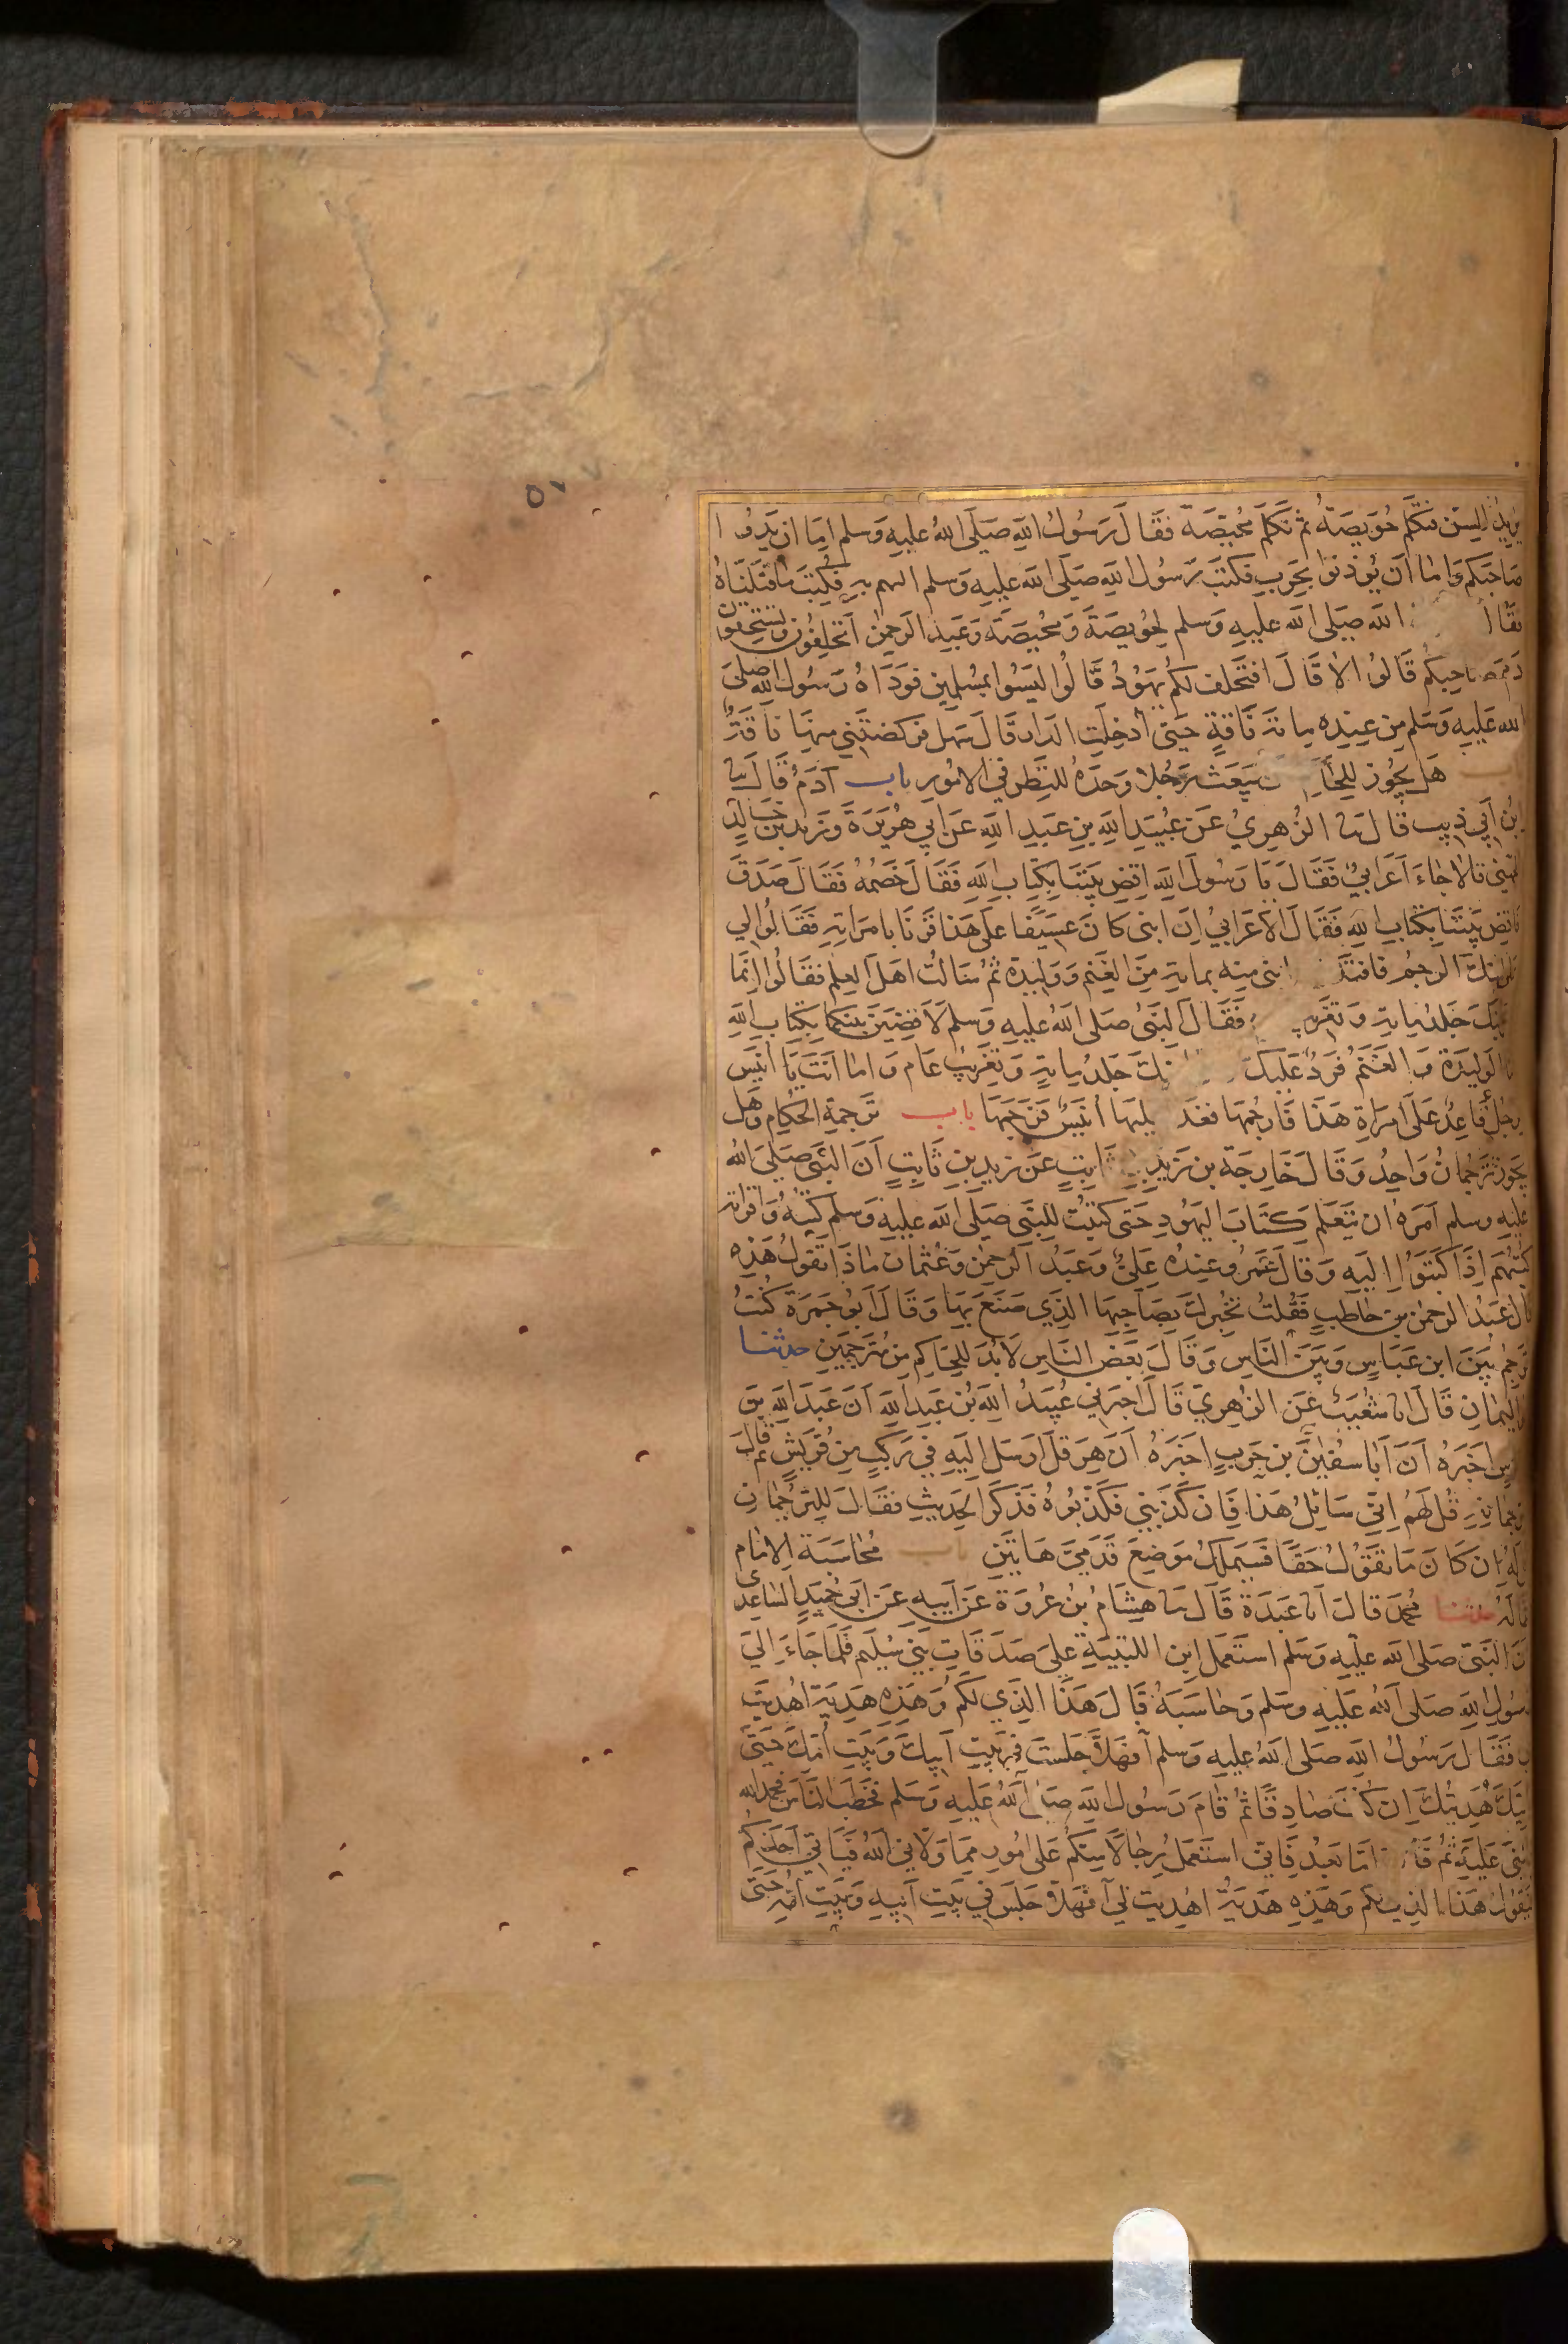 ٥٧٧
يريد السن فتكلم حويصة ثم تكلم محيصة فقال رسول الله صلى الله عليه وسلم اما ان يدوا
صاحبكم واما ان يوذنوا بحرب فكتب رسول الله صلى الله عليه وسلم اليهم به فكتب ما قتلناه
فقال الله صلى الله عليه وسلم لحويصة ومحيصة وعبد الرحمن اتحلفون وتستحقون
دم صاحبكم قالوا لا قال افتحلف لكم يهود قالوا ليسوا بمسلمين فوداه رسول الله صلى
الله عليه وسلم من عنده ماية ناقة حتى ادخلت الدار قال سهل فركضتني منها ناقة
باب هل يجوز للحا يبعث رجلا وحده للنظر في الامور باب آدم قال نا
بن ابي ذيب قال نا الزهري عن عبيد الله بن عبد الله عن ابي هريرة وزيد بن خالد
الجهني قالا جاء اعرابي فقال يا رسول الله اقض بيننا بكتاب الله فقال خصمه فقال صدق
فاقض بيننا بكتاب الله فقال الاعرابي ان ابني كان عسيفا على هذا فزنا بامراته فقالوا لي
على ابنك الرجم فافتد ابني منه بماية من الغنم ووليدة ثم سالت اهل العلم فقالوا انما
ابنك جلد ماية وتغريب فقال النبي صلى الله عليه وسلم لاقضين بينكما بكتاب الله
الوليدة والغنم فرد عليك بنك جلد ماية وتغريب عام واما انت يا انيس
رجل فاعد على امراة هذا فارجمها فغد عليها انيس فرجمها باب ترجمة الحكام وهل
يجوز ترجمان واحد وقال خارجة بن زيد بن ثابت عن زيد بن ثابت ان النبي صلى الله
عليه وسلم امره ان يتعلم كتاب اليهود حتى كتبت للنبي صلى الله عليه وسلم كتبه واقراته
كتبهم اذا كتبوا اليه وقال عمر وعنده علي وعبد الرحمن وعثمان ماذا تقول هذه
قال عبد الرحمن بن حاطب فقلت تخبرك بصاحبها الذي صنع بها وقال ابو جمرة كنت
ترجم بين ابن عباس وبين الناس وقال بعض الناس لا بد للحاكم من مترجمين حدثنا
اليمان قال انا شعيب عن الزهري قال اخبرني عبيد الله بن عبد الله ان عبد الله بن
عباس اخبره ان ابا سفيان بن حرب اخبره ان هرقل ارسل اليه في ركب من قريش ثم قال
لترجمانه قل لهم اني سائل هذا فان كذبني فكذبوه فذكر الحديث فقال للترجمان
له ان كان ما تقول حقا فسيملك موضع قدمي هاتين باب محاسبة الامام
عماله حدثنا محمد قال انا عبدة قال نا هشام بن عروة عن ابيه عن ابي حميد الساعدي
ان النبي صلى الله عليه وسلم استعمل ابن اللتبية على صدقات بني سليم فلما جاء الي
رسول الله صلى الله عليه وسلم وحاسبه قال هذا الذي لكم وهذه هدية اهديت
لي فقال رسول الله صلى الله عليه وسلم فهلا جلست في بيت ابيك وبيت امك حتى
تاتيك هديتك ان كنت صادقا ثم قام رسول الله صلى الله عليه وسلم فخطب الناس فحمد الله
واثنى عليه ثم قال اما بعد فاني استعمل رجالا منكم على امور مما ولاني الله فياتي احدكم
فيقول هذا الذي لكم وهذه هدية اهديت لي فهلا جلس في بيت ابيه وبيت امه حتى